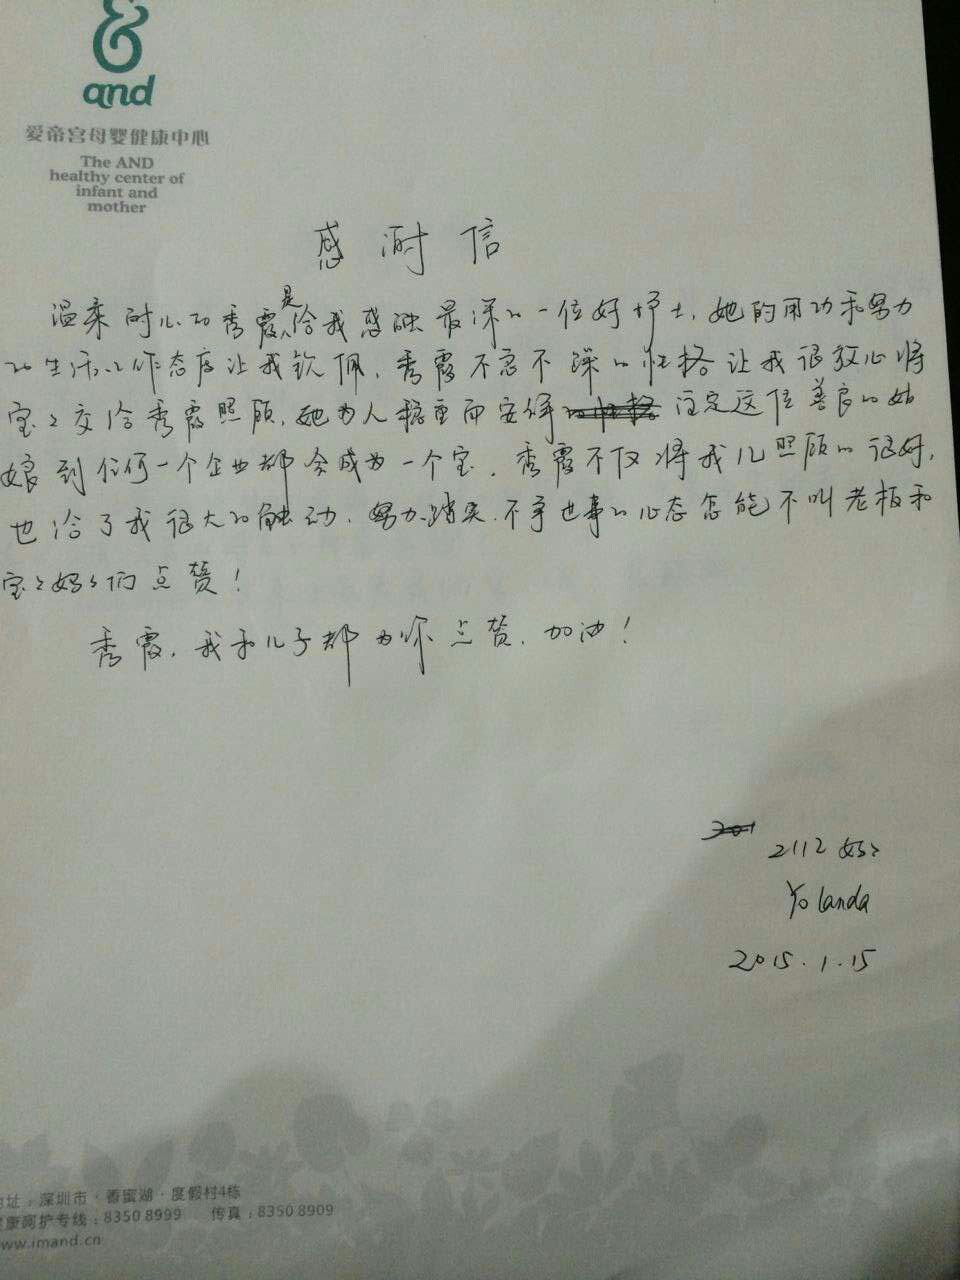 and
爱帝宫母婴健康中心
The AND
healthy center of
infant and
mother
感谢信
温柔耐心的秀霞是给我感触最深的一位好护士，她的用功和努力
的生活工作态度让我钦佩，秀霞不急不躁的性格让我很放心将
宝宝交给秀霞照顾，她为人稳重而安静 注定这位善良的姑
娘到任何一个企业都会成为一个宝。秀霞不仅将我儿照顾的很好，
也给了我很大的触动，努力、踏实、不争世事的心态怎能不叫老板和
宝宝妈妈们点赞！
秀霞，我和儿子都为你点赞，加油！
2112 妈妈
Yolanda
2015.1.15
地址：深圳市·香蜜湖·度假村4栋
健康呵护专线：8350 8999 传真：8350 8909
www.imand.cn